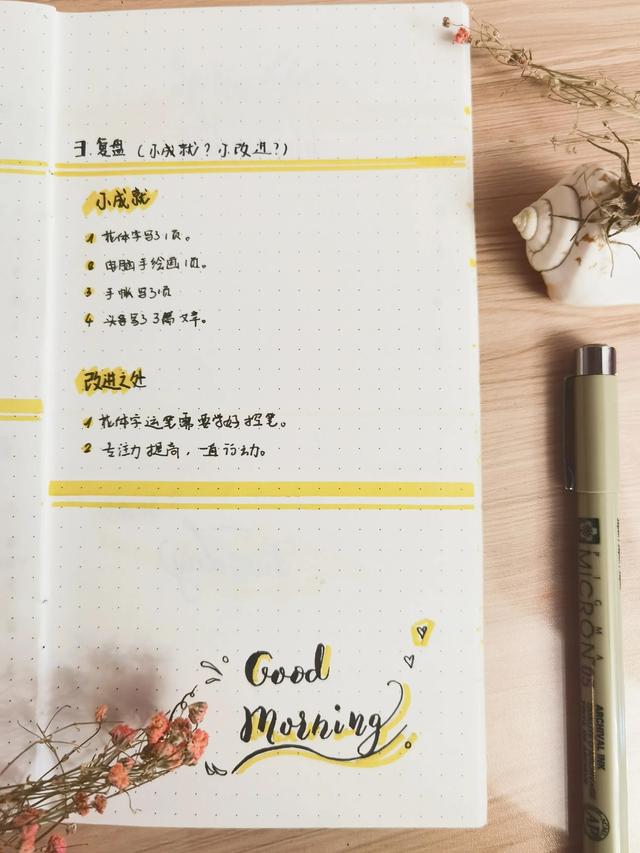 3.复盘(小成就?小改进?)
小成就
1 花体字写了1页。
2 电脑手绘画1页。
3 手帐写了1页
4 头条写了3篇文章。
改进之处
1 花体字运笔需要学好控笔。
2 专注力提高,一直行动。
Good
Morning
SIGMA
MICRON 05
ARCHIVAL INK